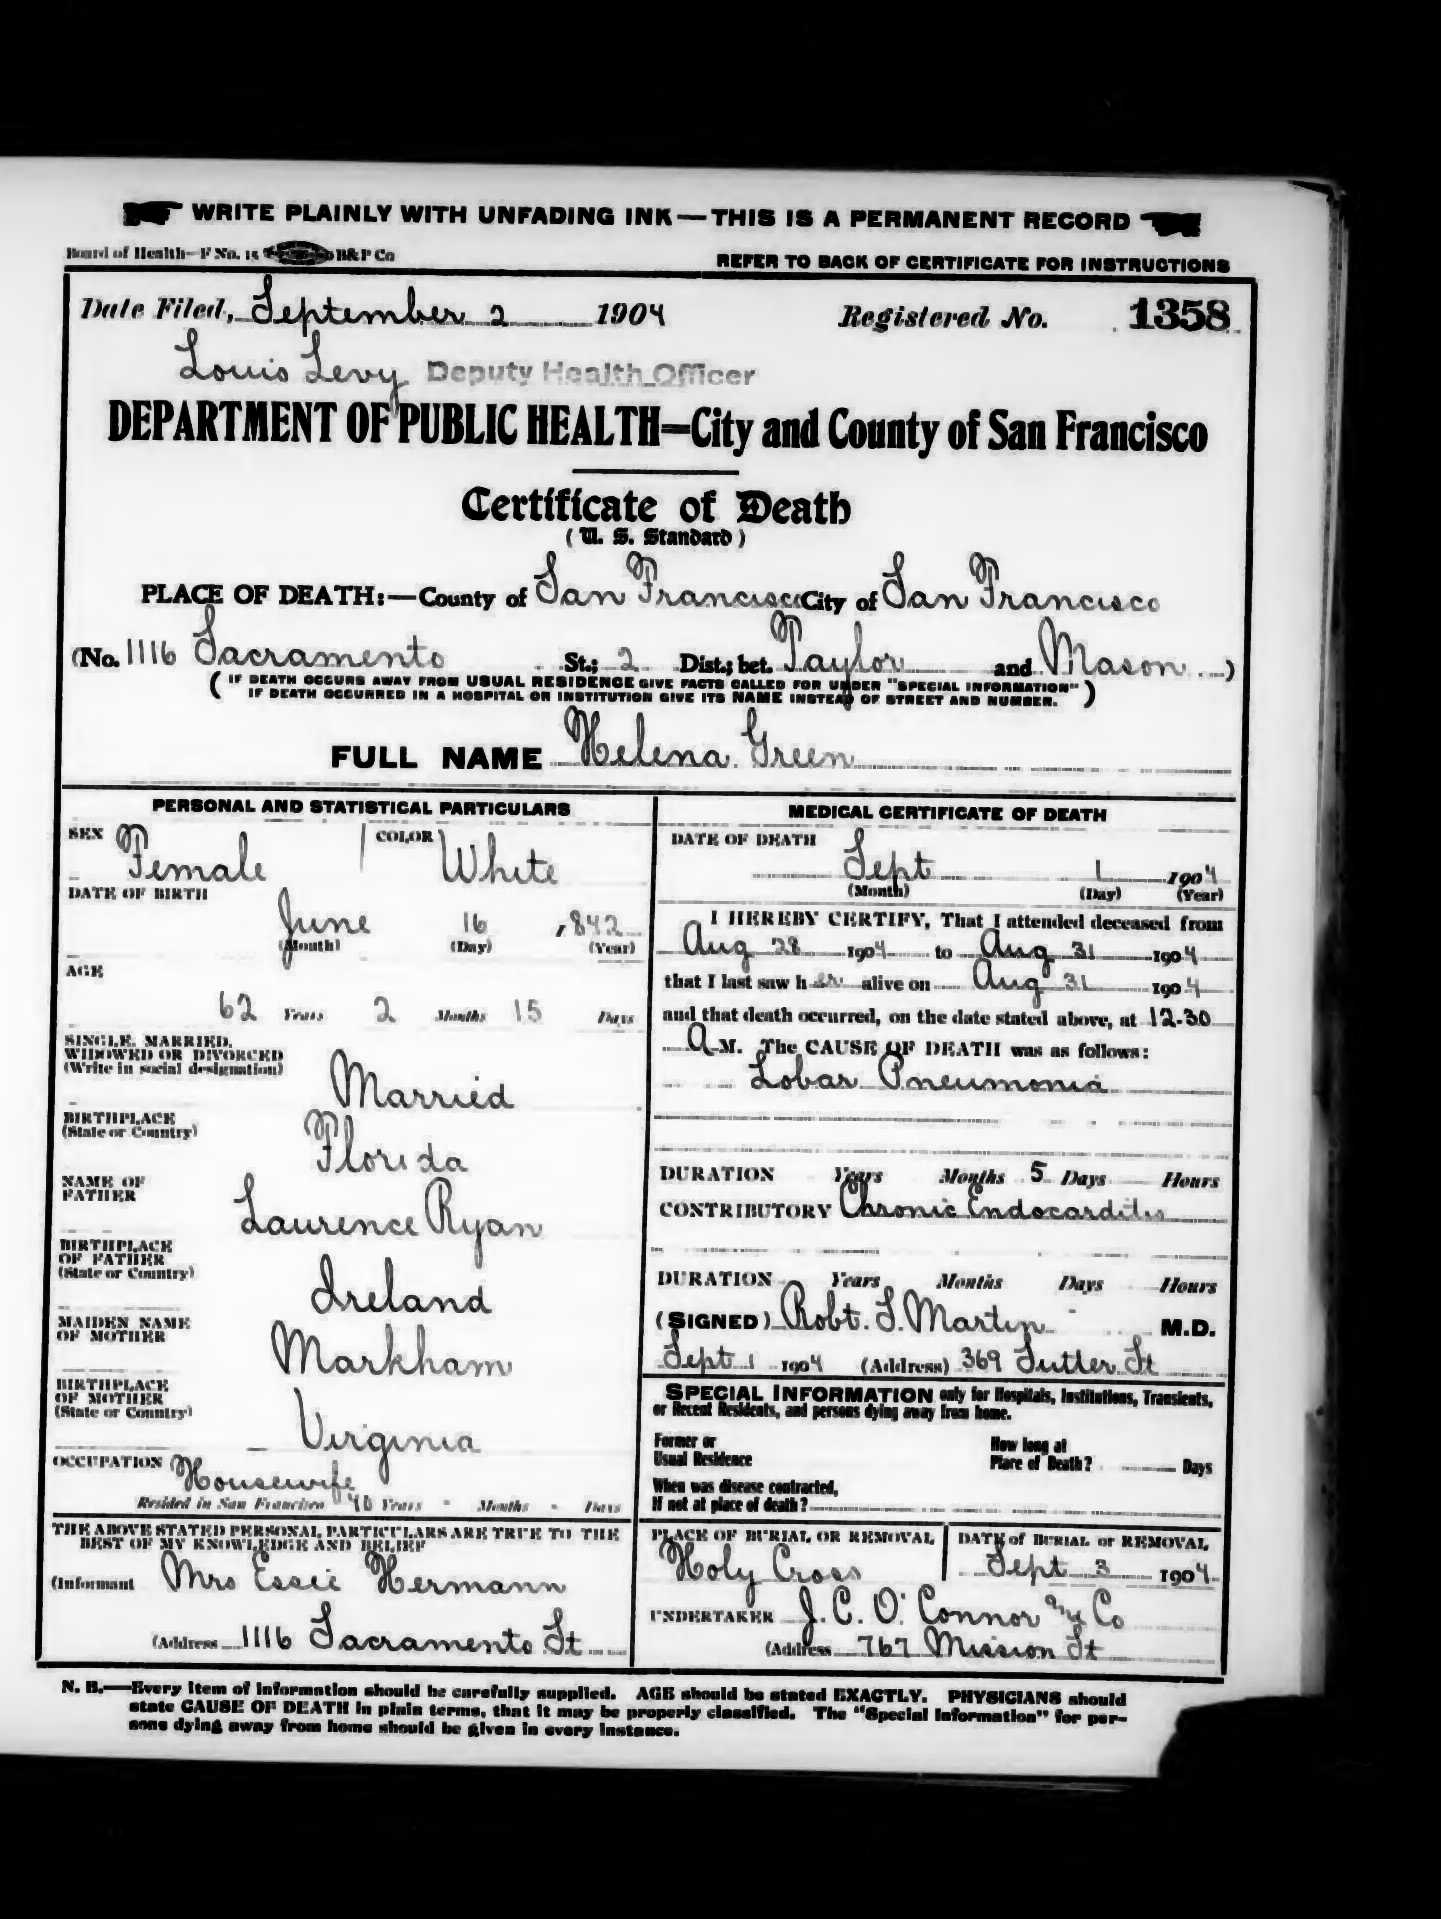 WRITE PLAINLY WITH UNFADING INK — THIS IS A PERMANENT RECORD
Board of Health—F No. 15 B&P Co REFER TO BACK OF CERTIFICATE FOR INSTRUCTIONS
Date Filed, September 2 1904 Registered No. 1358
Louis Levy Deputy Health Officer
DEPARTMENT OF PUBLIC HEALTH—City and County of San Francisco
Certificate of Death
(U. S. Standard)
PLACE OF DEATH:—County of San Francisco City of San Francisco
(No. 1116 Sacramento St.; 2 Dist.; bet. Taylor and Mason)
( IF DEATH OCCURS AWAY FROM USUAL RESIDENCE GIVE FACTS CALLED FOR UNDER "SPECIAL INFORMATION"
IF DEATH OCCURRED IN A HOSPITAL OR INSTITUTION GIVE ITS NAME INSTEAD OF STREET AND NUMBER. )
FULL NAME Helena Green
PERSONAL AND STATISTICAL PARTICULARS
SEX Female COLOR White
DATE OF BIRTH
June 16 1842
(Month) (Day) (Year)
AGE
62 Years 2 Months 15 Days
SINGLE, MARRIED,
WIDOWED OR DIVORCED
(Write in social designation)
Married
BIRTHPLACE
(State or Country)
Florida
NAME OF
FATHER
Laurence Ryan
BIRTHPLACE
OF FATHER
(State or Country)
Ireland
MAIDEN NAME
OF MOTHER
Markham
BIRTHPLACE
OF MOTHER
(State or Country)
Virginia
OCCUPATION Housewife
Resided in San Francisco 40 Years - Months - Days
THE ABOVE STATED PERSONAL PARTICULARS ARE TRUE TO THE
BEST OF MY KNOWLEDGE AND BELIEF
(Informant Mrs Essie Hermann
(Address 1116 Sacramento St
MEDICAL CERTIFICATE OF DEATH
DATE OF DEATH
Sept 1 1904
(Month) (Day) (Year)
I HEREBY CERTIFY, That I attended deceased from
Aug 28 1904 to Aug 31 1904
that I last saw her alive on Aug 31 1904
and that death occurred, on the date stated above, at 12.30
A M. The CAUSE OF DEATH was as follows:
Lobar Pneumonia
DURATION Years Months 5 Days Hours
CONTRIBUTORY Chronic Endocarditis
DURATION Years Months Days Hours
(SIGNED) Robt. S. Martin M.D.
Sept 1 1904 (Address) 369 Sutter St
SPECIAL INFORMATION only for Hospitals, Institutions, Transients,
or Recent Residents, and persons dying away from home.
Former or
Usual Residence
How long at
Place of Death? Days
When was disease contracted,
If not at place of death?
PLACE OF BURIAL OR REMOVAL
Holy Cross
DATE of BURIAL or REMOVAL
Sept 3 1904
UNDERTAKER J. C. O'Connor and Co
(Address 767 Mission St
N. B.—Every item of information should be carefully supplied. AGE should be stated EXACTLY. PHYSICIANS should
state CAUSE OF DEATH in plain terms, that it may be properly classified. The "Special Information" for per-
sons dying away from home should be given in every instance.